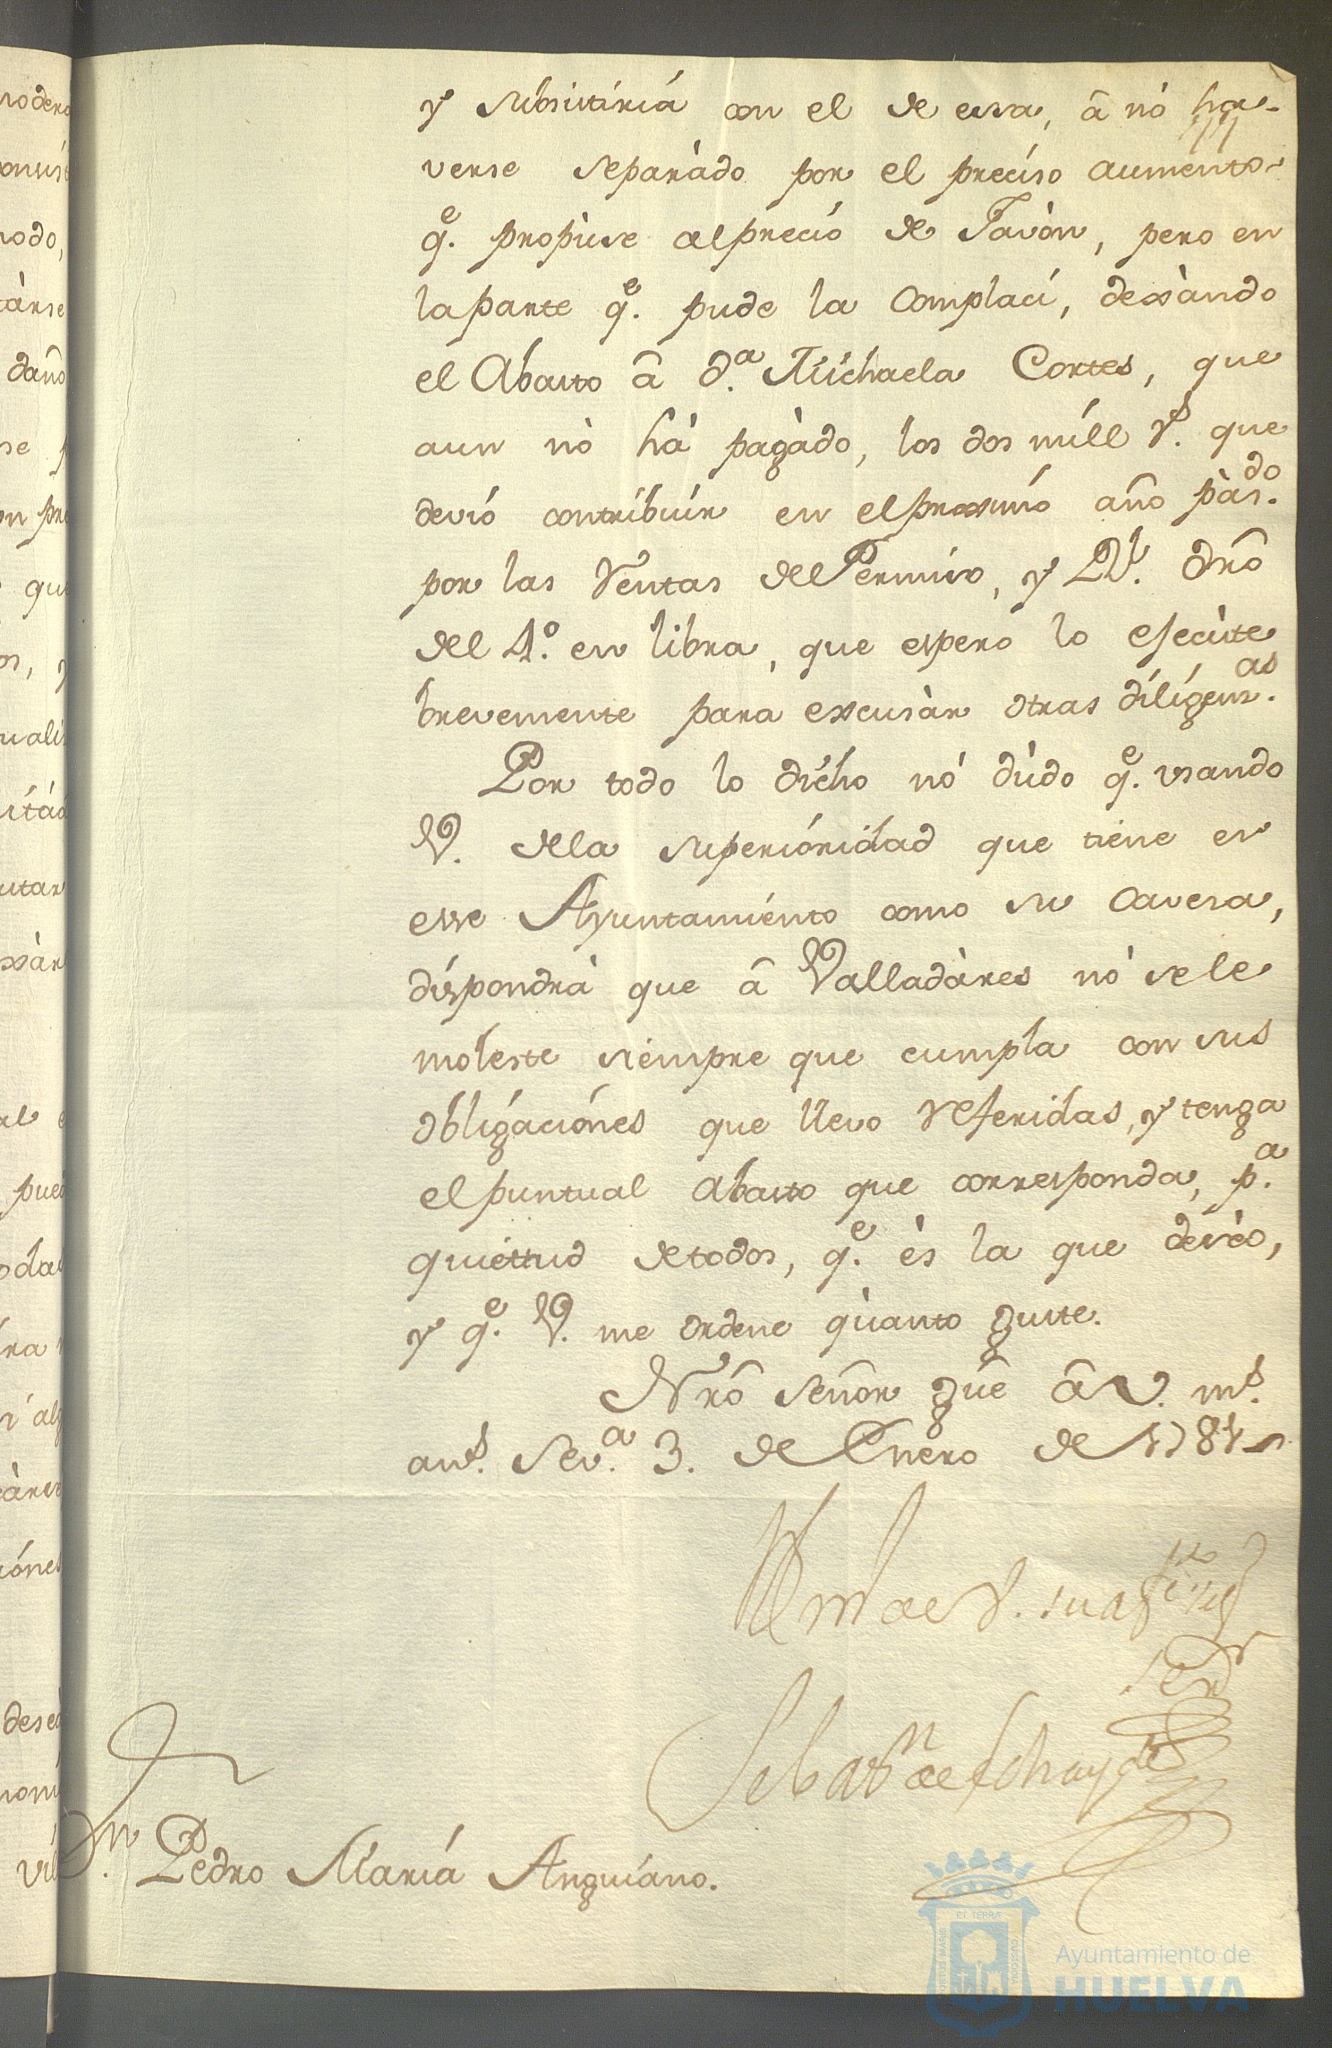 y subsistiria con el de essa, â no ha-
verse separàdo por el preciso aumento
q.e propùse al precio de Javòn, pero en
la parte q.e pude la Complací, dexàndo
el Abasto â d.a Michaela Cortes, que
aun nò hà pagàdo, los dos mill r.s que
devió contribuìr en el proximo año pàs.do
por las Ventas del Permiso, y R.l dro
del 4.o en libra, que espero lo efecùte
brevemente para excusàr otras diligens.as
Por todo lo dicho nó dùdo q.e usando
V. dela superioridad que tiene en
esse Ayuntamiento como su Cavesa,
dispondrà que â Valladàres nó se le
moleste siempre que cumpla con sus
obligaciónes que llevo referidas, y tenga
el puntual abasto que corresponda, p.a
quiettud de todos, q.e ès la que desèo,
y q.e V. me ordene quànto guste.
Nrô Señor gúe â V. m.s
an.s Sev.a 3. de Enero de 1781
BlM de V. su af.to
ser.dr
Sebast.n de
D.n Pedro María Anguiano.
Ayuntamiento de
HUELVA